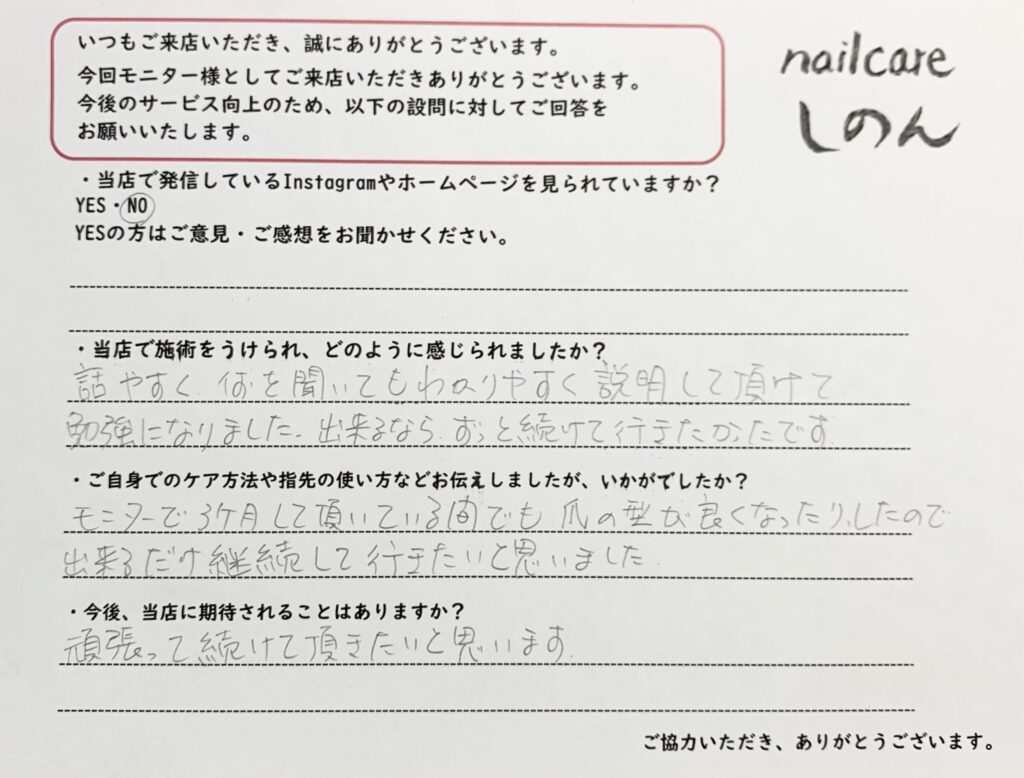 nailcare
しのん
いつもご来店いただき、誠にありがとうございます。
今回モニター様としてご来店いただきありがとうございます。
今後のサービス向上のため、以下の設問に対してご回答を
お願いいたします。
・当店で発信しているInstagramやホームページを見られていますか？
YES・NO
YESの方はご意見・ご感想をお聞かせください。
・当店で施術をうけられ、どのように感じられましたか？
話やすく、何を聞いてもわかりやすく説明して頂けて
勉強になりました。出来るなら、ずっと続けて行きたかったです
・ご自身でのケア方法や指先の使い方などお伝えしましたが、いかがでしたか？
モニターで3ケ月して頂いている間でも爪の型が良くなったりしたので
出来るだけ継続して行きたいと思いました
・今後、当店に期待されることはありますか？
頑張って続けて頂きたいと思います.
ご協力いただき、ありがとうございます。